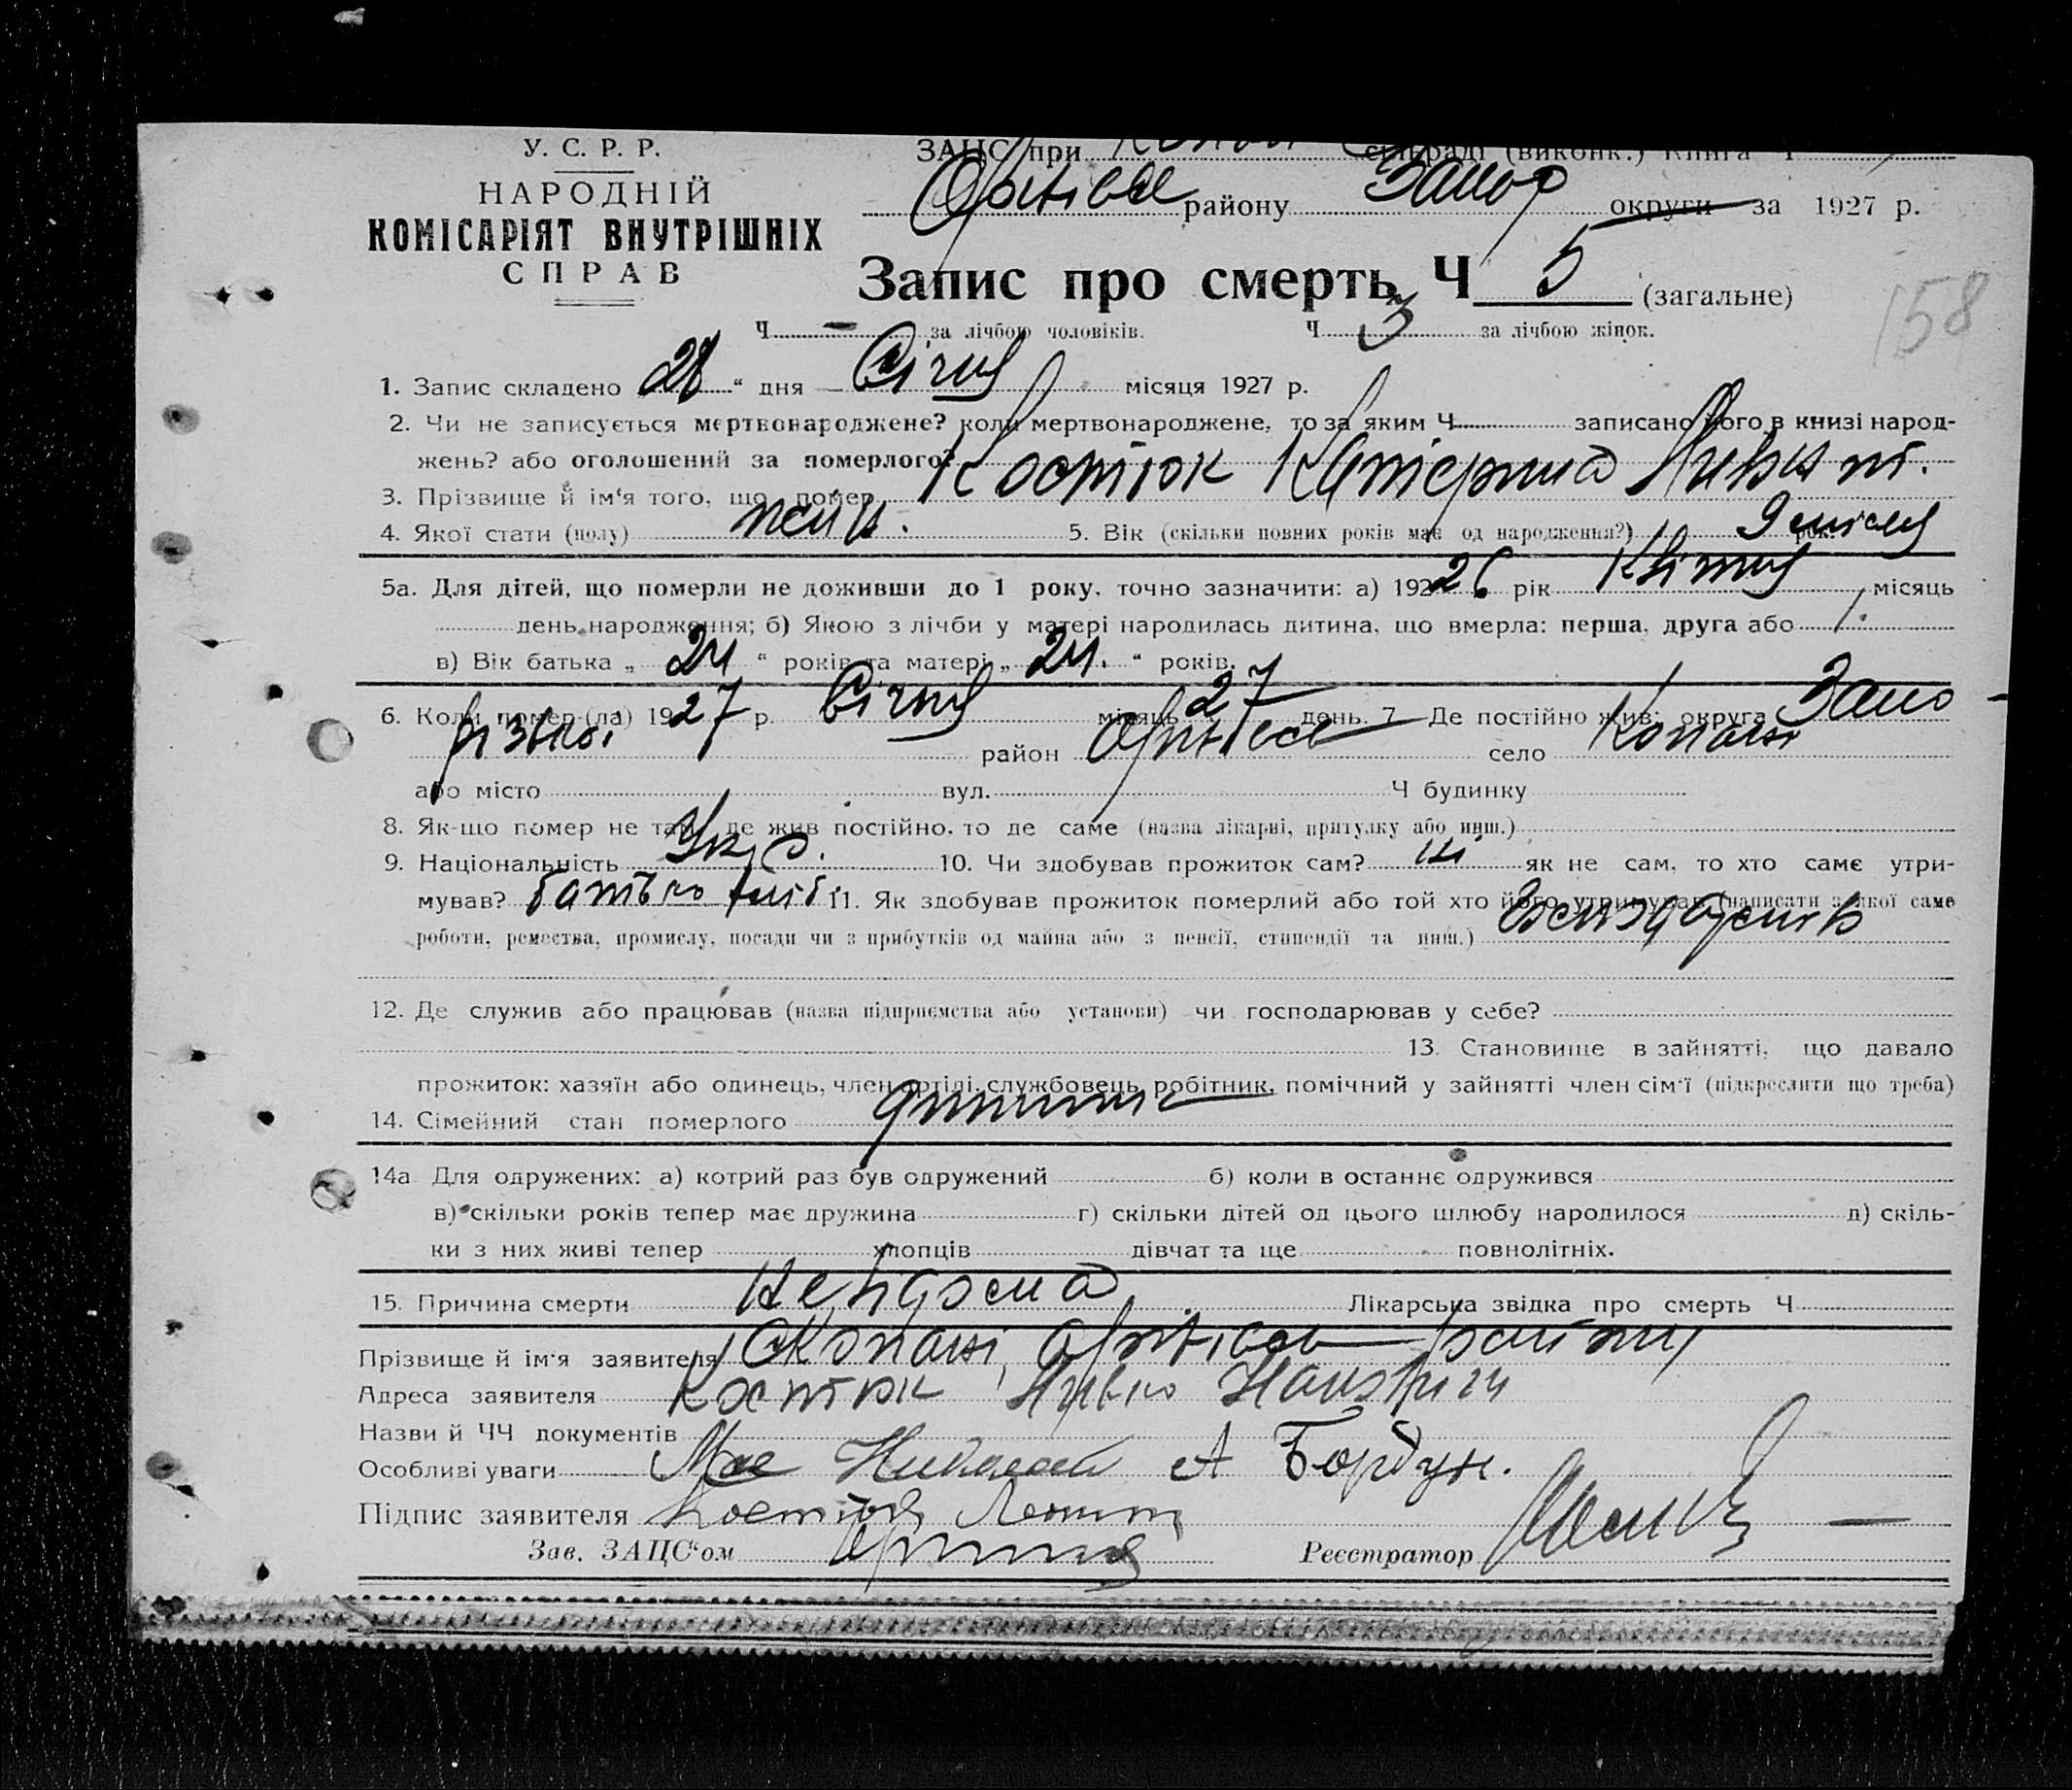 У. С. Р. Р.
НАРОДНІЙ
КОМІСАРІЯТ ВНУТРІШНІХ
СПРАВ
ЗАЦС при сільраді (виконк.) книга Ч
району Запор округи за 1927 р.
Запис про смерть Ч 5 (загальне)
158
Ч — за лічбою чоловіків. Ч 3 за лічбою жінок.
1. Запис складено 28 “ дня Січня місяця 1927 р.
2. Чи не записується мертвонароджене? коли мертвонароджене, то за яким Ч записано його в книзі народ-
жень? або оголошений за померлого?
3. Прізвище й ім‘я того, що помер Костюк Катерина
4. Якої стати (полу) жін. 5. Вік (скільки повних років має од народження?) 9 рок.
5а. Для дітей, що померли не доживши до 1 року, точно зазначити: а) 1926 рік Квітня місяць
день народження; б) Якою з лічби у матері народилась дитина, що вмерла: перша, друга або 1.
в) Вік батька „ 24 “ років та матері „ 24. “ років.
6. Коли помер (ла) 1927 р. Січня місяць 27 день. 7 Де постійно жив: округа Запо-
різької район село Копані
або місто вул. Ч будинку
8. Як-що помер не там, де жив постійно, то де саме (назва лікарні, притулку або инш.)
9. Національність Укр. 10. Чи здобував прожиток сам? ні як не сам, то хто саме утри-
мував? батько 11. Як здобував прожиток померлий або той хто його утримував (написати з якої саме
роботи, ремества, промислу, посади чи з прибутків од майна або з пенсії, стипендії та инш.)
12. Де служив або працював (назва підприємства або установи) чи господарював у себе?
13. Становище в зайнятті, що давало
прожиток: хазяїн або одинець, член артілі, службовець, робітник, помічний у зайнятті член сім‘ї (підкреслити що треба)
14. Сімейний стан померлого
14а Для одружених: а) котрий раз був одружений б) коли в останнє одружився
в) скільки років тепер має дружина г) скільки дітей од цього шлюбу народилося д) скіль-
ки з них живі тепер хлопців дівчат та ще повнолітніх.
15. Причина смерти невідома Лікарська звідка про смерть Ч
Прізвище й ім‘я заявителя Копані, району
Адреса заявителя Костюк
Назви й ЧЧ документів
Особливі уваги А Бордун.
Підпис заявителя
Зав. ЗАЦС‘ом Реєстратор